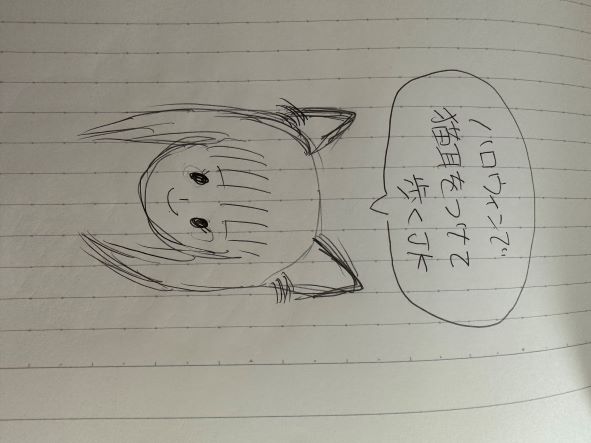 ハロウィンで
猫耳をつけて
歩くJK